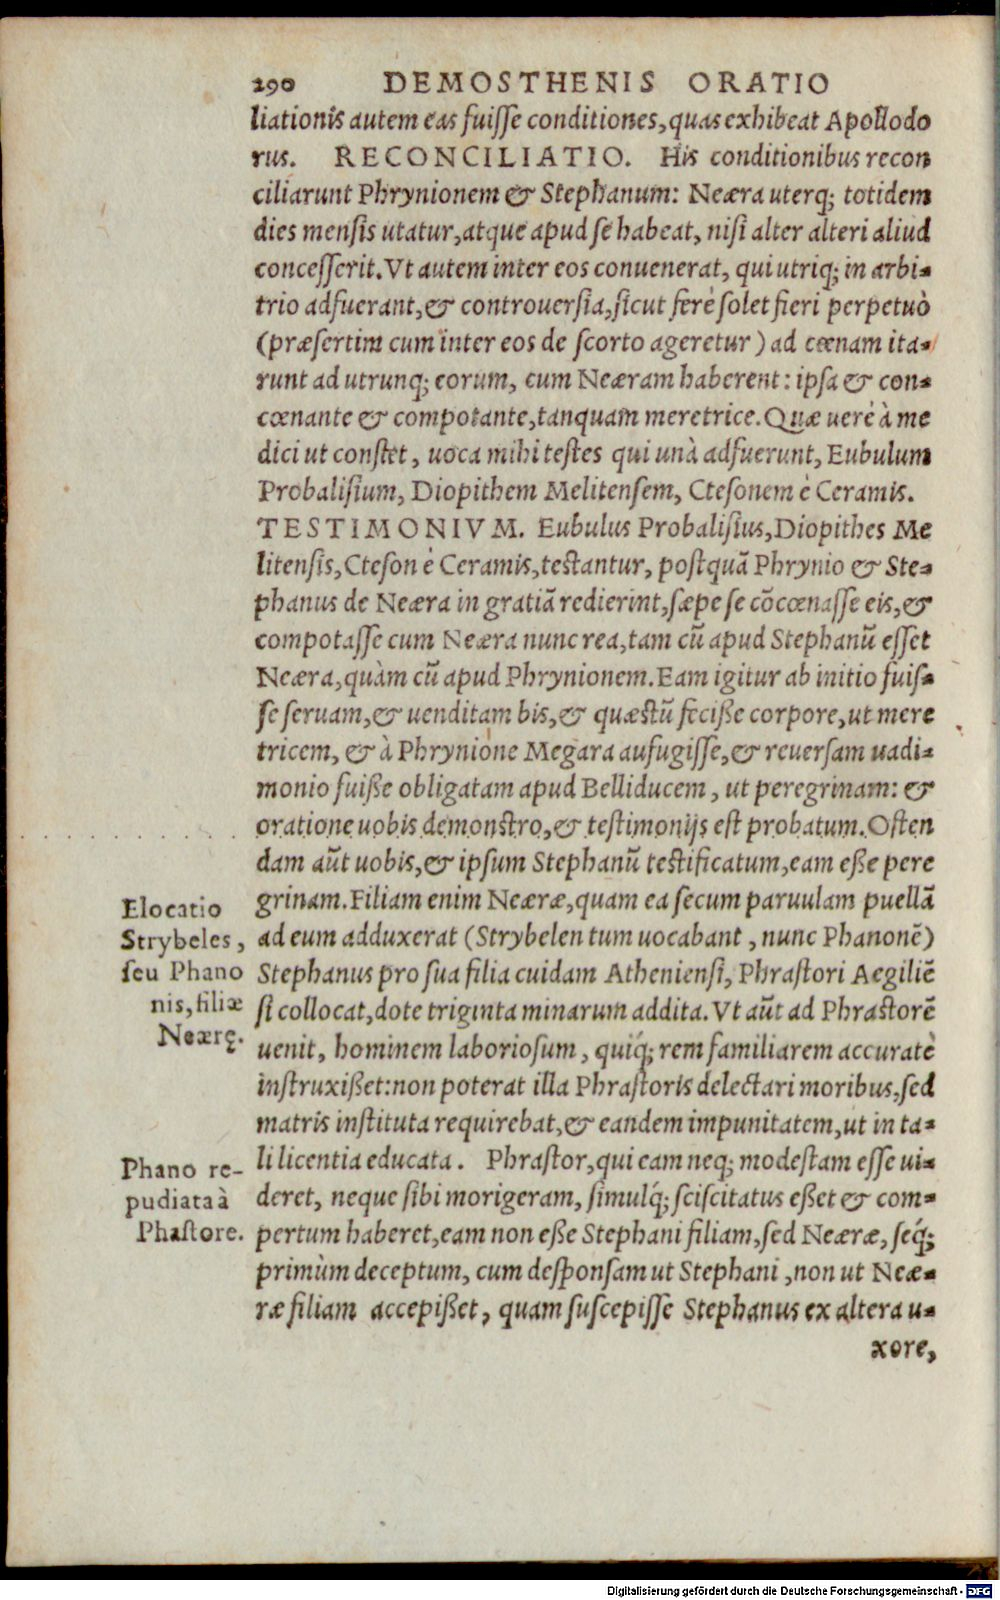 290 DEMOSTHENIS ORATIO
liationis autem eas fuisse conditiones, quas exhibeat Apollodo
rus. RECONCILIATIO. His conditionibus recon
ciliarunt Phrynionem & Stephanum: Neæra uterq; totidem
dies mensis utatur, atque apud se habeat, nisi alter alteri aliud
concesserit. Vt autem inter eos conuenerat, qui utriq; in arbi-
trio adfuerant, & controuersia, sicut ferè solet fieri perpetuò
(præsertim cum inter eos de scorto ageretur) ad cœnam ita-
runt ad utrunq; eorum, cum Neæram haberent: ipsa & con-
cœnante & compotante, tanquam meretrice. Quæ uerè à me
dici ut constet, uoca mihi testes qui unà adfuerunt, Eubulum
Probalisium, Diopithem Melitensem, Ctesonem è Ceramis.
TESTIMONIVM. Eubulus Probalisius, Diopithes Me
litensis, Cteson è Ceramis, testantur, postquã Phrynio & Ste-
phanus de Neæra in gratiã redierint, sæpe se cõcœnasse eis, &
compotasse cum Neæra nunc rea, tam cũ apud Stephanũ esset
Neæra, quàm cũ apud Phrynionem. Eam igitur ab initio fuis-
se seruam, & uenditam bis, & quæstũ fecisse corpore, ut mere
tricem, & à Phrynione Megara aufugisse, & reuersam uadi-
monio fuisse obligatam apud Belliducem, ut peregrinam: &
oratione uobis demonstro, & testimonijs est probatum. Osten
dam aũt uobis, & ipsum Stephanũ testificatum, eam esse pere
grinam. Filiam enim Neæræ, quam ea secum paruulam puellã
ad eum adduxerat (Strybelen tum uocabant, nunc Phanonẽ)
Stephanus pro sua filia cuidam Atheniensi, Phrastori Aegiliẽ
si collocat, dote triginta minarum addita. Vt aũt ad Phrastorẽ
uenit, hominem laboriosum, quiq́; rem familiarem accuratè
instruxisset: non poterat illa Phrastoris delectari moribus, sed
matris instituta requirebat, & eandem impunitatem, ut in ta-
li licentia educata. Phrastor, qui eam neq; modestam esse ui-
deret, neque sibi morigeram, simulq́; sciscitatus esset & com-
pertum haberet, eam non esse Stephani filiam, sed Neæræ, seq́;
primùm deceptum, cum desponsam ut Stephani, non ut Neæ-
ræ filiam accepisset, quam suscepisse Stephanus ex altera u-
xore,
Elocatio
Strybeles,
seu Phano
nis, filiæ
Neærę.
Phano re-
pudiata à
Phastore.
Digitalisierung gefördert durch die Deutsche Forschungsgemeinschaft - DFG